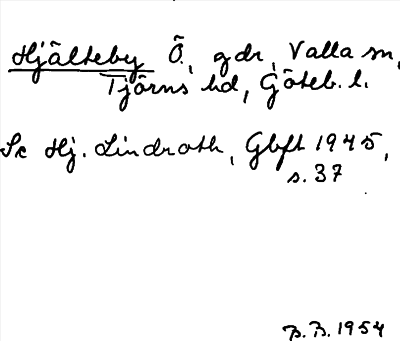 Hjälteby Ö., gdr, Valla sn,
Tjörns hd, Göteb. l.
Se Hj. Lindroth, Gbft 1945,
s. 37
B. B. 1954